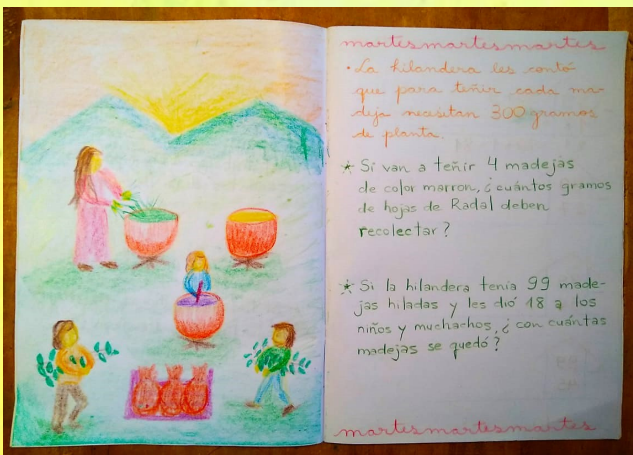 martesmartesmartes
• La hilandera les contó
que para teñir cada ma-
deja necesitan 300 gramos
de planta.
* Si van a teñir 4 madejas
de color marron, ¿cuántos gramos
de hojas de Radal deben
recolectar?
* Si la hilandera tenía 99 made-
jas hiladas y les dió 18 a los
niños y muchachos, ¿con cuántas
madejas se quedó?
martesmartesmartes